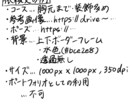 ・コース…胸元まで・装飾多め
・参考画像…https://drive~
・ポーズ…https://
・背景…上下ボーダーフレーム
・水色(#0ce2e8)
・透過無し
・サイズ…1000px×1000px,350dpi
・ポートフォリオとしての利用
…不可